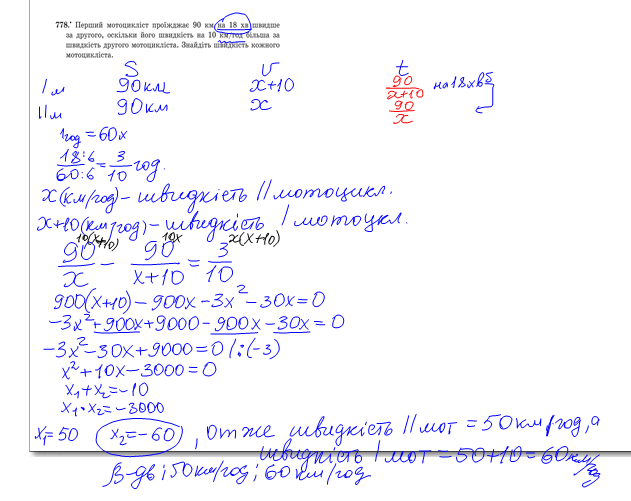 778.° Перший мотоцикліст проїжджає 90 км на 18 хв швидше
за другого, оскільки його швидкість на 10 км/год більша за
швидкість другого мотоцикліста. Знайдіть швидкість кожного
мотоцикліста.
S V t
I м 90 км x+10 90/(x+10) на 18 хв б
II м 90 км x 90/x
1 год = 60 х
18:6/60:6 = 3/10 год.
x (км/год) – швидкість II мотоцикл.
x+10 (км/год) – швидкість I мотоцкл.
10(x+10) 10x x(x+10)
90/x – 90/(x+10) = 3/10
900(x+10) – 900x – 3x² – 30x = 0
–3x² + 900x + 9000 – 900x – 30x = 0
–3x² – 30x + 9000 = 0 /:(-3)
x² + 10x – 3000 = 0
x₁ + x₂ = –10
x₁ · x₂ = –3000
x₁ = 50 x₂ = –60 , Отже швидкість II мот = 50 км/год, а
швидкість I мот = 50+10 = 60 км/год
В-дь ; 50 км/год ; 60 км/год